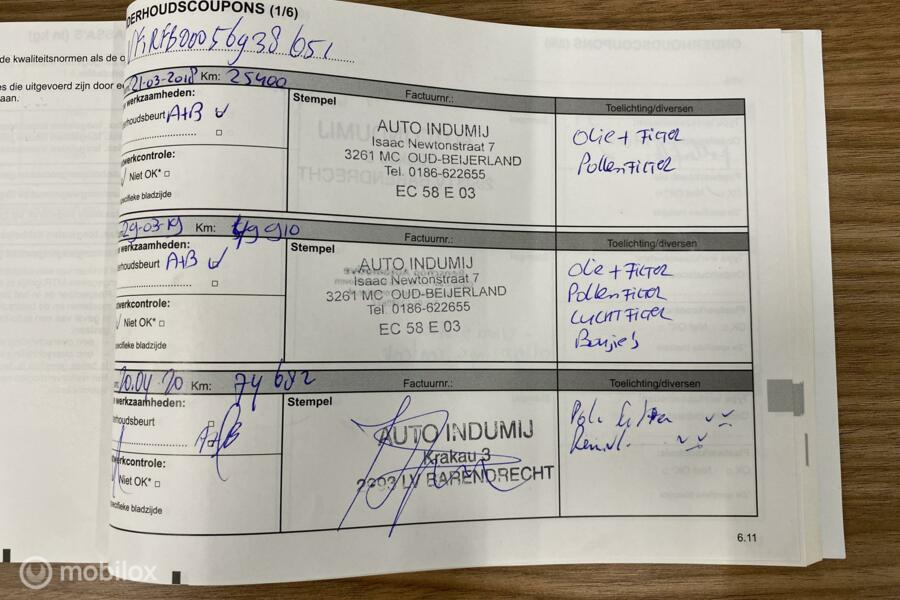 DERHOUDSCOUPONS (1/6)
de kwaliteitsnormen als de
es die uitgevoerd zijn door
aan.
21-03-2018 Km: 25400
werkzaamheden:
erhoudsbeurt A+B
werkcontrole:
Niet OK*
ecifieke bladzijde
Stempel
Factuurnr.:
AUTO INDUMIJ
Isaac Newtonstraat 7
3261 MC OUD-BEIJERLAND
Tel. 0186-622655
EC 58 E 03
Toelichting/diversen
Olie + Filter
Pollenfilter
29-03-19 Km: 49910
werkzaamheden:
erhoudsbeurt A+B
werkcontrole:
Niet OK*
ecifieke bladzijde
Stempel
Factuurnr.:
AUTO INDUMIJ
Isaac Newtonstraat 7
3261 MC OUD-BEIJERLAND
Tel. 0186-622655
EC 58 E 03
Toelichting/diversen
Olie + Filter
Pollenfilter
Luchtfilter
Bougie's
20.04 20 Km: 74 682
werkzaamheden:
erhoudsbeurt
A+B
werkcontrole:
Niet OK*
ecifieke bladzijde
Stempel
Factuurnr.:
AUTO INDUMIJ
Krakau 3
2993 LV BARENDRECHT
Toelichting/diversen
6.11
mobilox